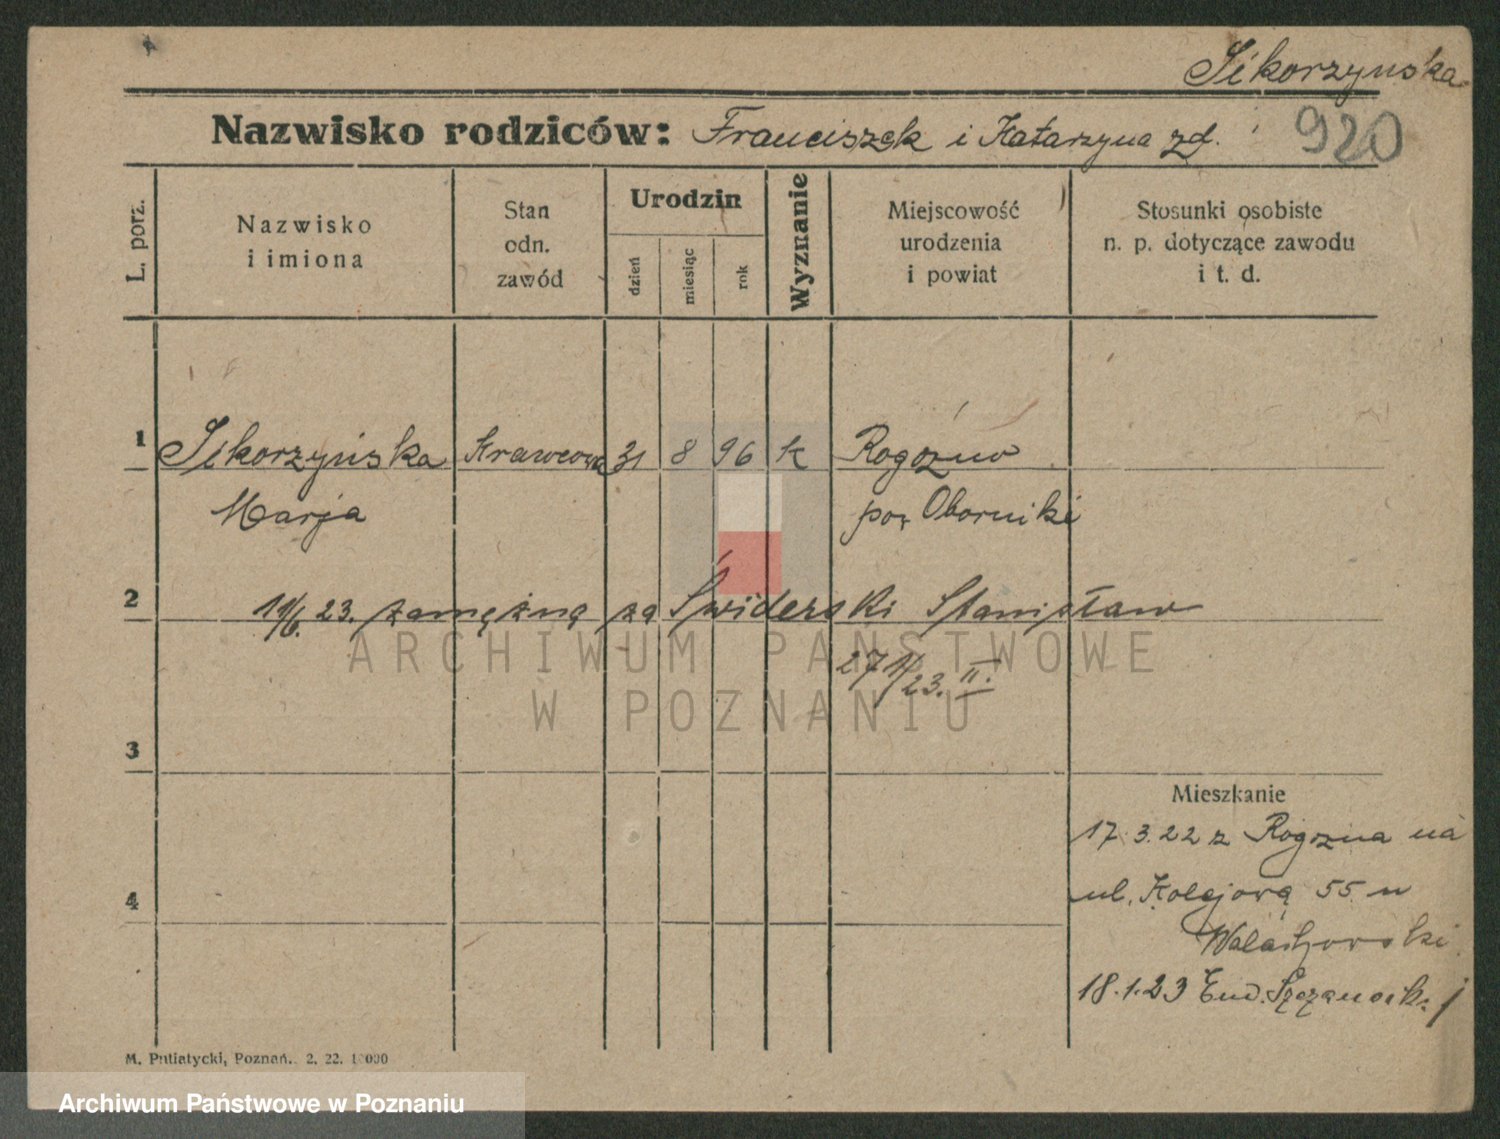 Sikorzynska
Nazwisko rodziców: Franciszek i Katarzyna zd. 920
L. porz.
Nazwisko
i imiona
Stan
odn.
zawód
Urodzin
dzień
miesiąc
rok
Wyznanie
Miejscowość
urodzenia
i powiat
Stosunki osobiste
n. p. dotyczące zawodu
i t. d.
1 Sikorzyńska Krawcowa 31 8 96 k Rogoźno
Marja pow Oborniki
2 23. zamężną za Świderski Stanisław
ARCHIWUM PAŃSTWOWE
271/23. II.
W POZNANIU
3
Mieszkanie
17.3.22 z Rogozna na
4 ul. Kolejową 55 u
18.1.23
M. Putiatycki, Poznań. 2. 22.
Archiwum Państwowe w Poznaniu